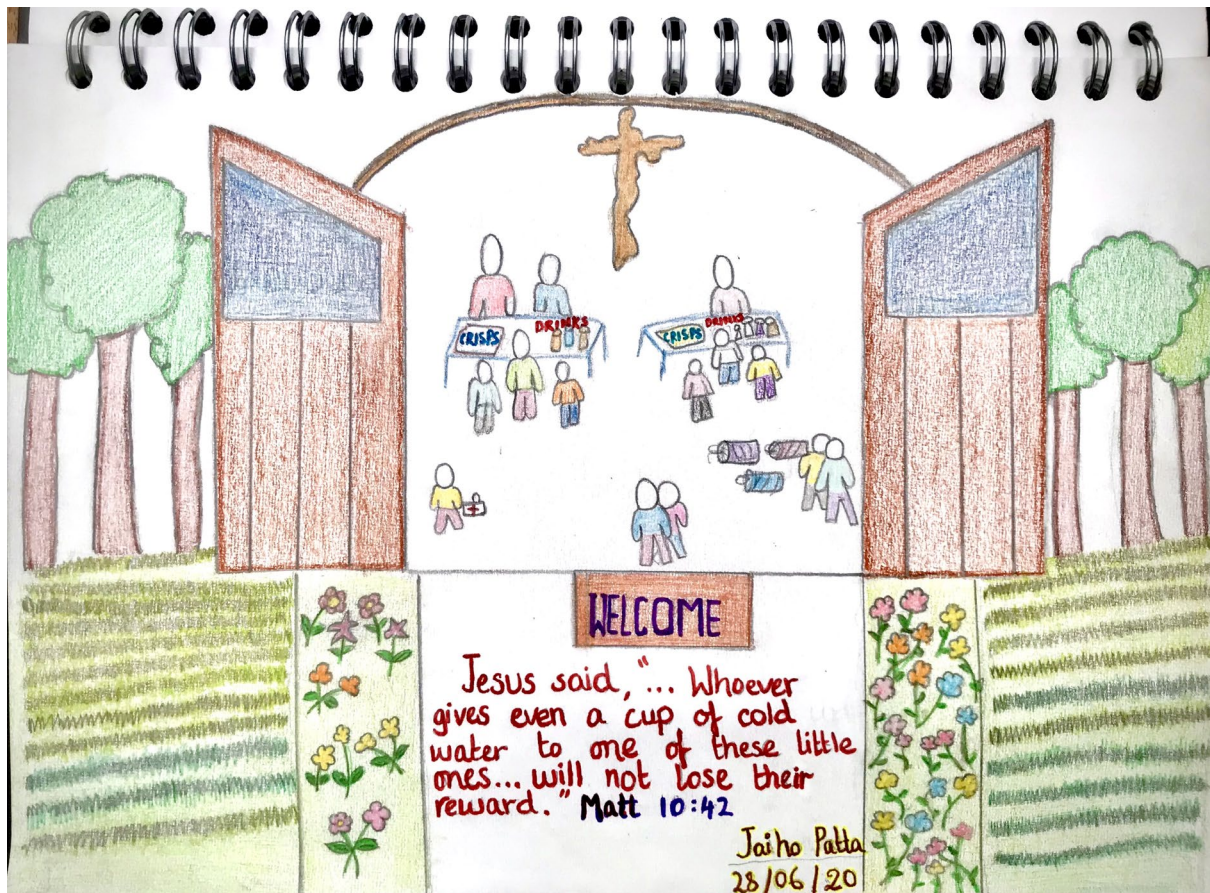 CRISPS
DRINKS
CRISPS
DRINKS
WELCOME
Jesus said, "... Whoever
gives even a cup of cold
water to one of these little
ones... will not lose their
reward." Matt 10:42
Jaiho Patta
28/06/20